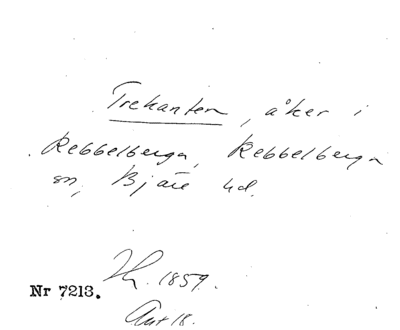 Trekanten, åker i
Rebbelberga, Rebbelberga
sn, Bjäre hd.
1859.
Nr 7213.
18.